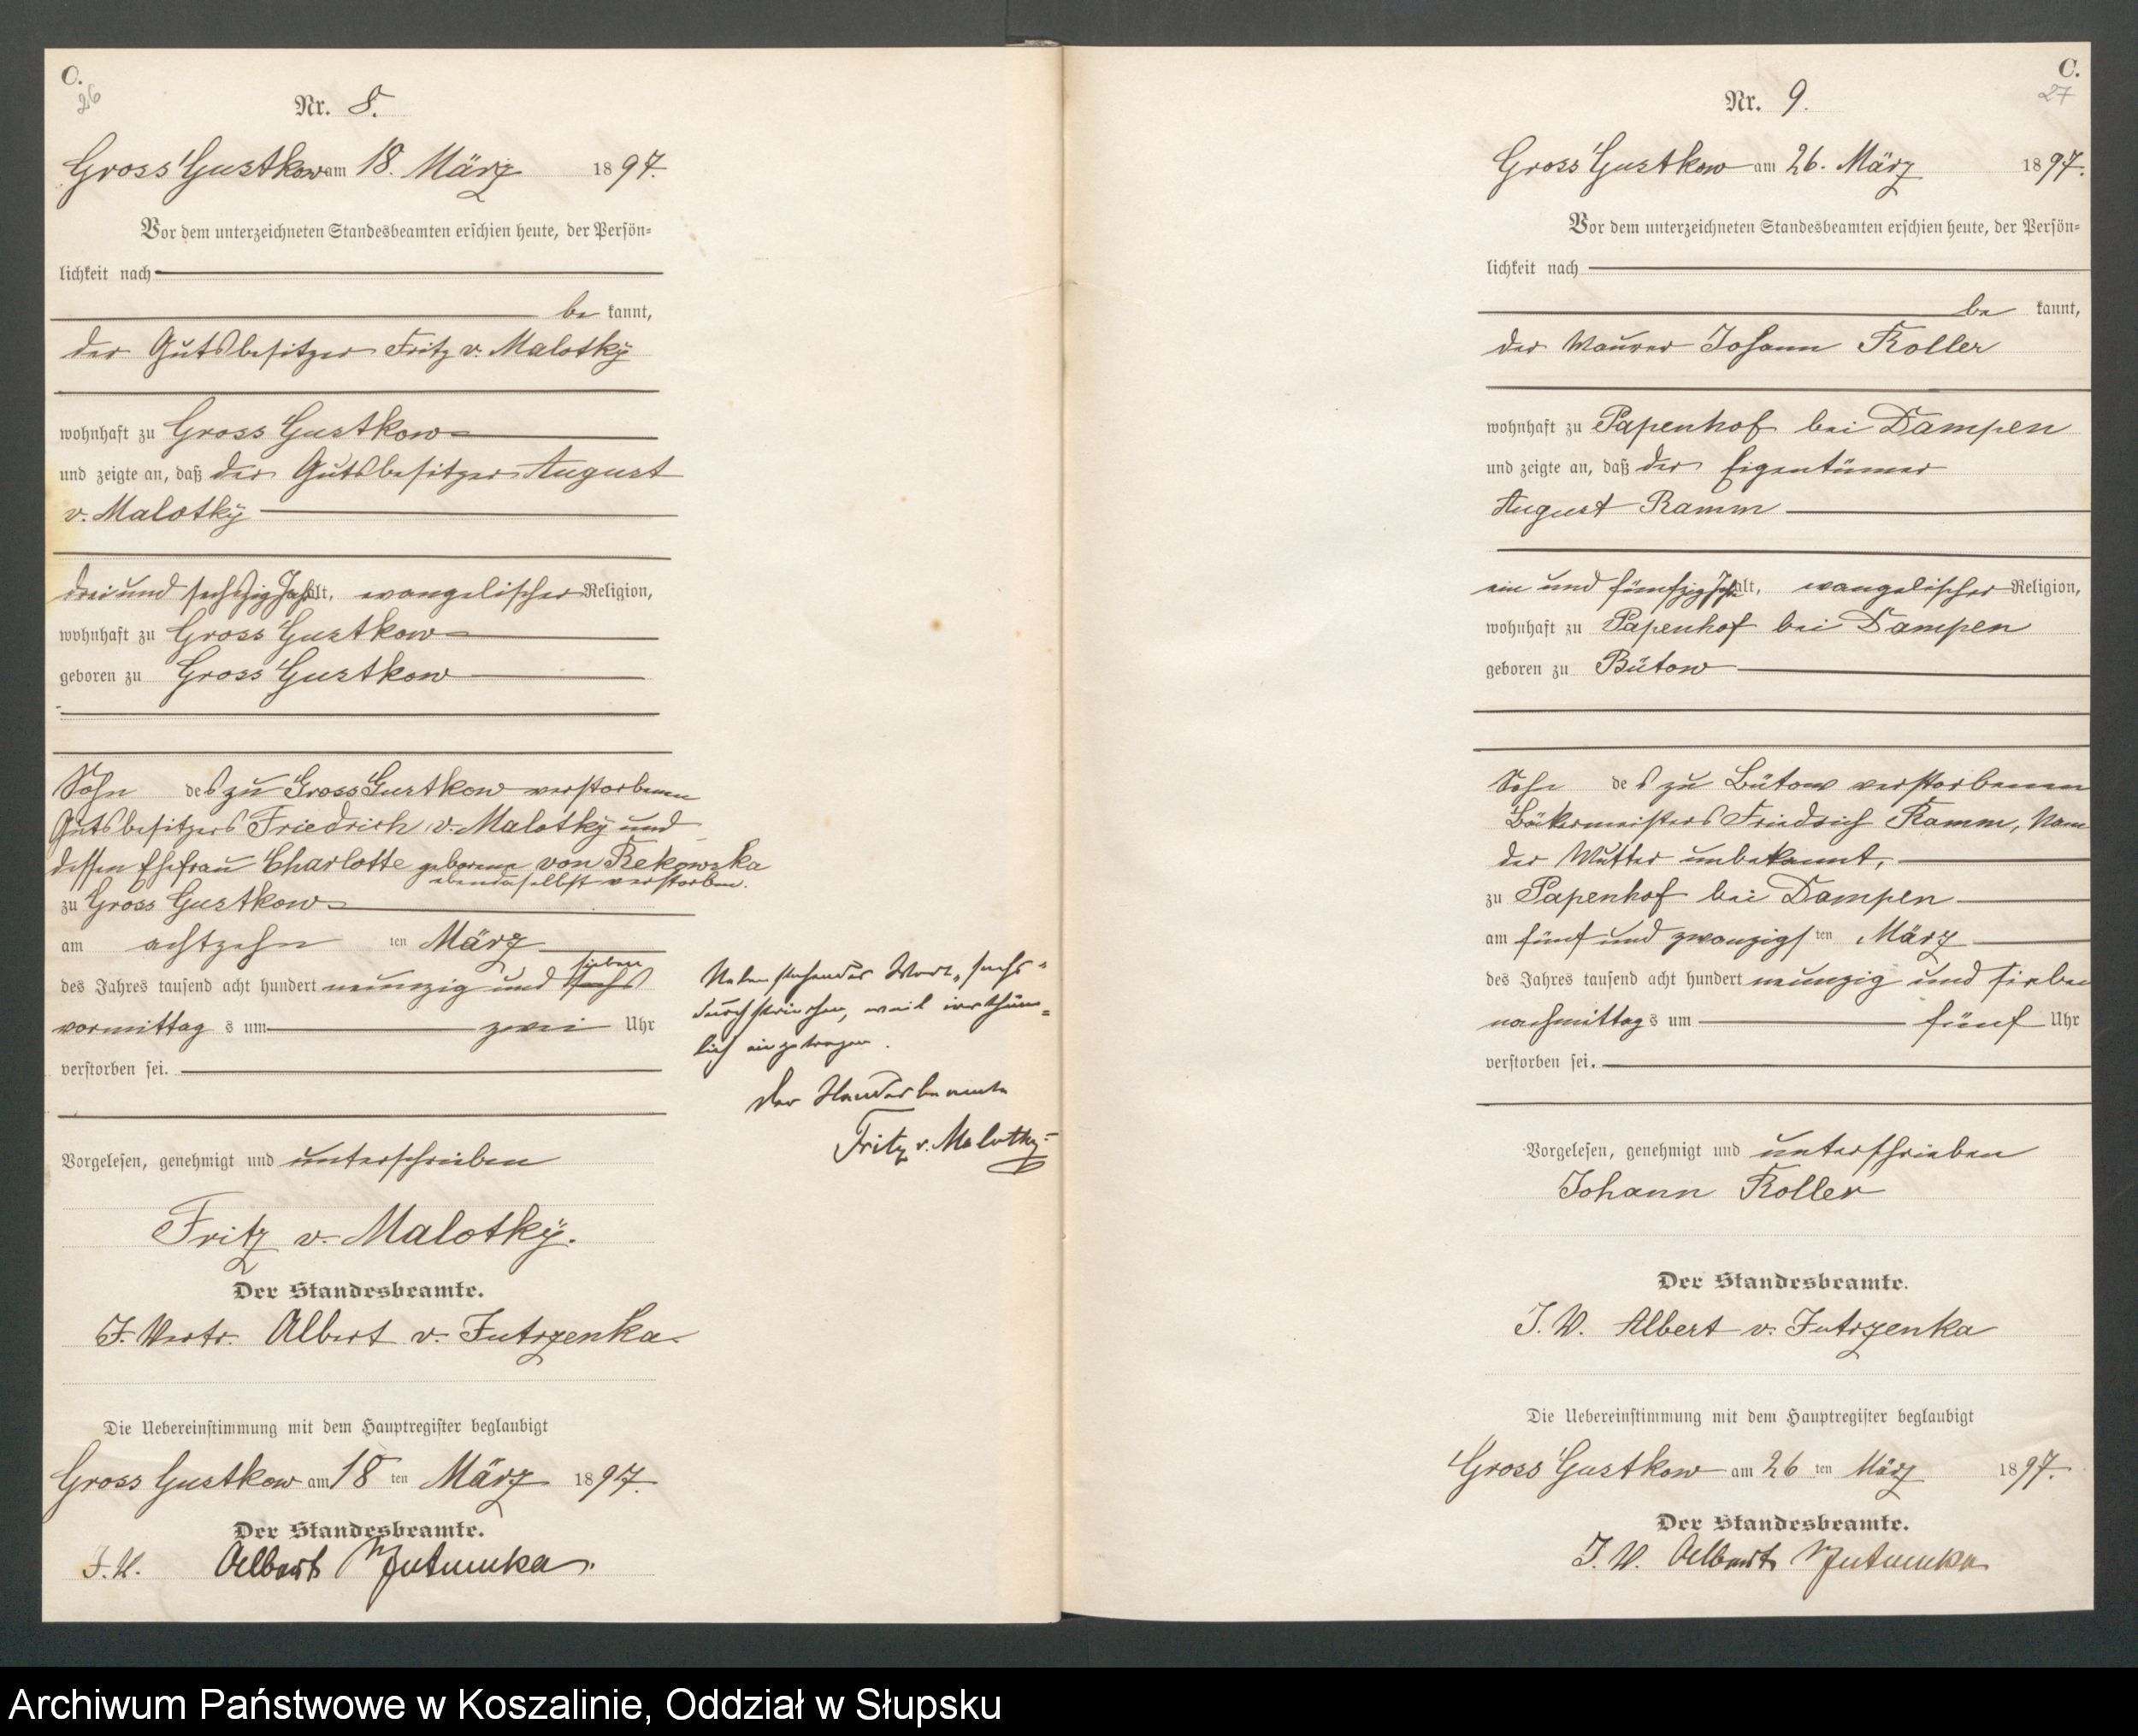 C.
26
Nr. 8.
Gross Gustkow am 18. März 1897.
Vor dem unterzeichneten Standesbeamten erschien heute, der Persön-
lichkeit nach
be kannt,
der Gutsbesitzer Fritz v. Malotky
wohnhaft zu Gross Gustkow
und zeigte an, daß der Gutsbesitzer August
v. Malotky
drei und sechszig Jahre alt, evangelischer Religion,
wohnhaft zu Gross Gustkow
geboren zu Gross Gustkow
Sohn des zu Gross Gustkow verstorbenen
Gutsbesitzers Friedrich v. Malotky und
dessen Ehefrau Charlotte geborene von Rekowska
ebendaselbst verstorben.
zu Gross Gustkow
am achtzehn ten März
sieben
des Jahres tausend acht hundert neunzig und sechs
vormittag s um zwei Uhr
verstorben sei.
Nebenstehendes Wort „sechs"
durchstrichen, weil irrthüm=
lich eingetragen.
Der Standesbeamte
Fritz v. Malotky
Vorgelesen, genehmigt und unterschrieben
Fritz v. Malotky.
Der Standesbeamte.
J. Vertr. Albert v. Jutrzenka
Die Uebereinstimmung mit dem Hauptregister beglaubigt
Gross Gustkow am 18 ten März 1897.
Der Standesbeamte.
J. V. Albert v Jutrzenka.
C.
27
Nr. 9.
Gross Gustkow am 26. März 1897.
Vor dem unterzeichneten Standesbeamten erschien heute, der Persön-
lichkeit nach
be kannt,
der Maurer Johann Koller
wohnhaft zu Papenhof bei Dampen
und zeigte an, daß der Eigentümer
August Ramm
ein und fünfzig Jahre alt, evangelischer Religion,
wohnhaft zu Papenhof bei Dampen
geboren zu Bütow
Sohn des zu Bütow verstorbenen
Bäkermeisters Friedrich Ramm, Name
der Mutter unbekannt,
zu Papenhof bei Dampen
am fünf und zwanzigs ten März
des Jahres tausend acht hundert neunzig und sieben
nachmittag s um fünf Uhr
verstorben sei.
Vorgelesen, genehmigt und unterschrieben
Johann Koller
Der Standesbeamte.
J. V. Albert v. Jutrzenka
Die Uebereinstimmung mit dem Hauptregister beglaubigt
Gross Gustkow am 26 ten März 1897.
Der Standesbeamte.
J. V. Albert v Jutrzenka
Archiwum Państwowe w Koszalinie, Oddział w Słupsku